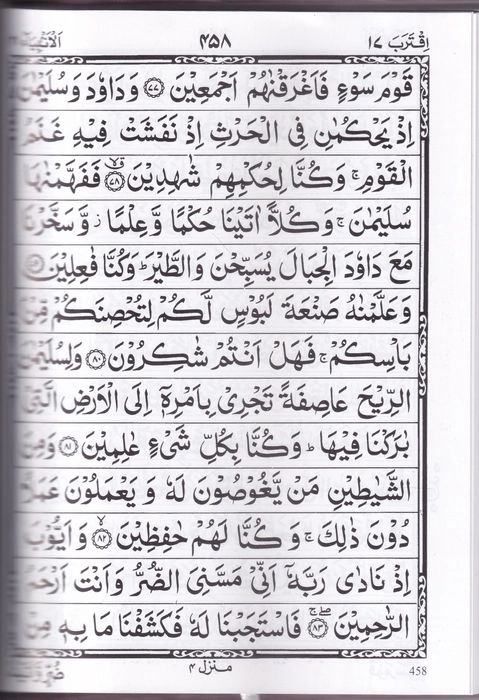 اِقْتَرَبَ ١٧ ٤٥٨ الْاَنْۢبِيَآءِ
قَوْمَ سَوْءٍ فَاَغْرَقْنٰهُمْ اَجْمَعِيْنَ ٧٧ وَدَاوٗدَ وَسُلَيْمٰنَ
اِذْ يَحْكُمٰنِ فِى الْحَرْثِ اِذْ نَفَشَتْ فِيْهِ غَنَمُ
الْقَوْمِ ۚ وَكُنَّا لِحُكْمِهِمْ شٰهِدِيْنَ ٧٨ فَفَهَّمْنٰهَا
سُلَيْمٰنَ ۚ وَكُلًّا اٰتَيْنَا حُكْمًا وَّعِلْمًا ز وَّسَخَّرْنَا
مَعَ دَاوٗدَ الْجِبَالَ يُسَبِّحْنَ وَالطَّيْرَ ؕ وَكُنَّا فٰعِلِيْنَ ٧٩
وَعَلَّمْنٰهُ صَنْعَةَ لَبُوْسٍ لَّكُمْ لِتُحْصِنَكُمْ مِّنْۢ
بَاْسِكُمْ ۚ فَهَلْ اَنْتُمْ شٰكِرُوْنَ ٨٠ وَلِسُلَيْمٰنَ
الرِّيْحَ عَاصِفَةً تَجْرِىْ بِاَمْرِهٖۤ اِلَى الْاَرْضِ الَّتِىْ
بٰرَكْنَا فِيْهَا ؕ وَكُنَّا بِكُلِّ شَىْءٍ عٰلِمِيْنَ ٨١ وَمِنَ
الشَّيٰطِيْنِ مَنْ يَّغُوْصُوْنَ لَهٗ وَيَعْمَلُوْنَ عَمَلًا
دُوْنَ ذٰلِكَ ۚ وَكُنَّا لَهُمْ حٰفِظِيْنَ ٨٢ وَاَيُّوْبَ
اِذْ نَادٰى رَبَّهٗۤ اَنِّىْ مَسَّنِىَ الضُّرُّ وَاَنْتَ اَرْحَمُ
الرّٰحِمِيْنَ ٨٣ فَاسْتَجَبْنَا لَهٗ فَكَشَفْنَا مَا بِهٖ مِنْ
ضُرٍّ منزل ٤ 458